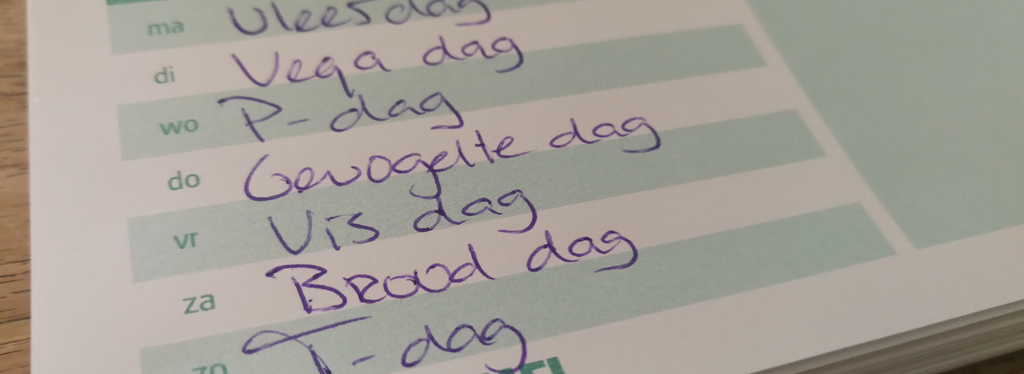 ma Vleesdag
di Vega dag
wo P-dag
do Gevogelte dag
vr Vis dag
za Brood dag
zo T-dag